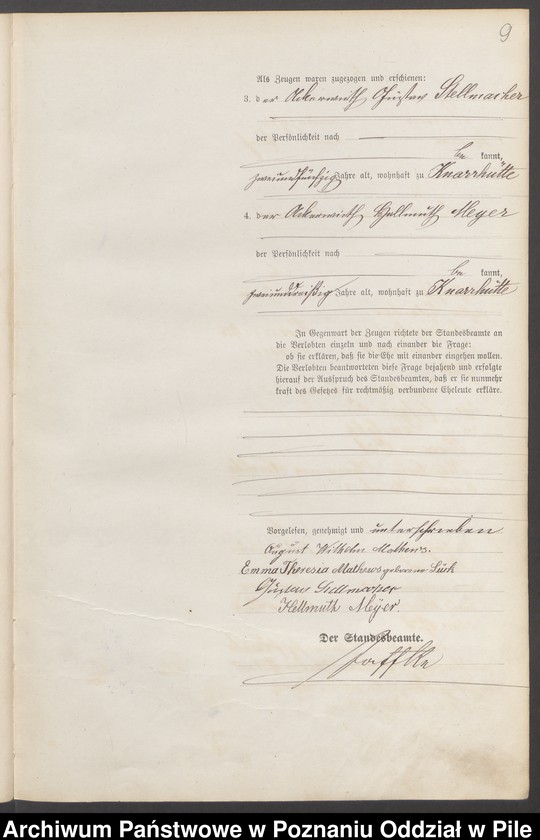 9
Als Zeugen waren zugezogen und erschienen:
3. der Ackerwirth Gustav Stellmacher
der Persönlichkeit nach
be kannt,
zweiundfünfzig Jahre alt, wohnhaft zu Knarrhütte
4. der Ackerwirth Hellmuth Meyer
der Persönlichkeit nach
be kannt,
zweiunddreißig Jahre alt, wohnhaft zu Knarrhütte
In Gegenwart der Zeugen richtete der Standesbeamte an
die Verlobten einzeln und nach einander die Frage:
ob sie erklären, daß sie die Ehe mit einander eingehen wollen.
Die Verlobten beantworteten diese Frage bejahend und erfolgte
hierauf der Ausspruch des Standesbeamten, daß er sie nunmehr
kraft des Gesetzes für rechtmäßig verbundene Eheleute erkläre.
Vorgelesen, genehmigt und unterschrieben
August Wilhelm Mathews.
Emma Theresia Mathews geborene Lück
Gustav Stellmacher
Hellmuth Meyer.
Der Standesbeamte.
Archiwum Państwowe w Poznaniu Oddział w Pile